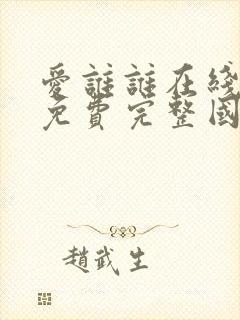 愛誰誰在綫
免費完整國
趙武生